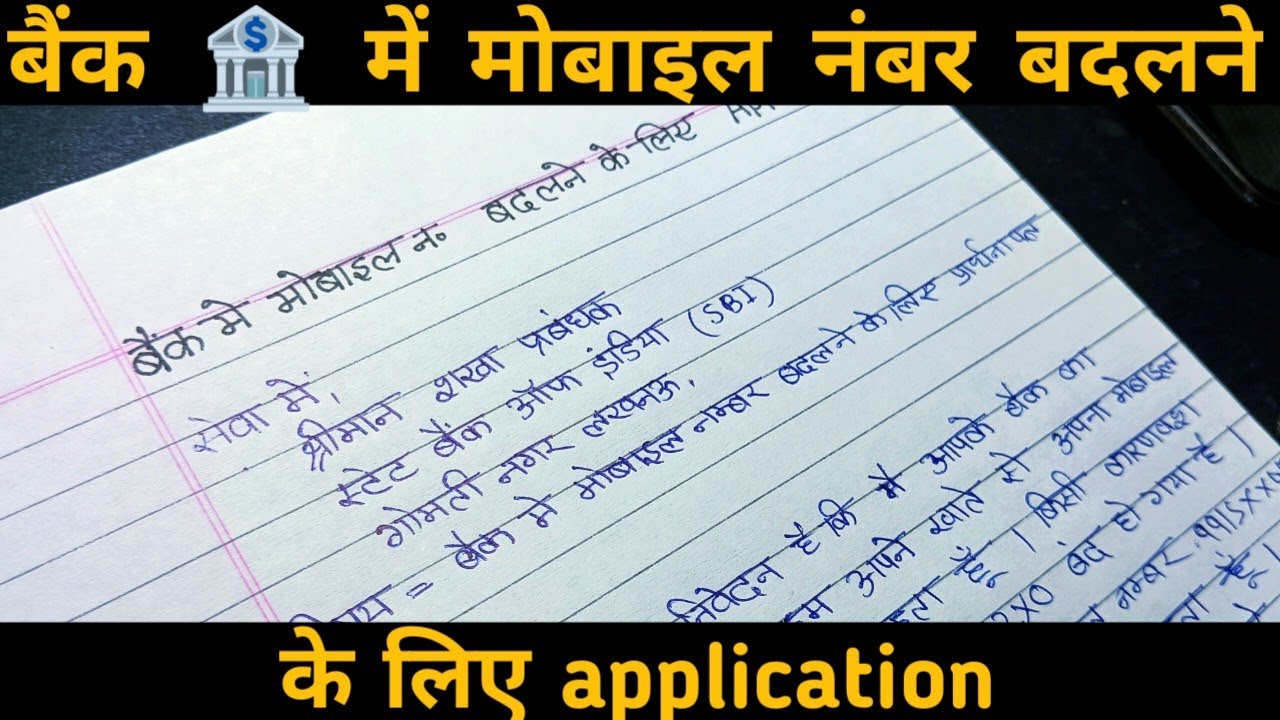 बैंक में मोबाइल नंबर बदलने
बैंक मे मोबाइल न॰ बदलने के लिए
सेवा में,
श्रीमान शखा प्रबंधक
स्टेट बैंक ऑफ इंडिया (SBI)
गोमती नगर लखनऊ.
= बैंक मे मोबाइल नम्बर बदलने के लिए प्रार्थना पत्र
निवेदन है कि मै आपके बैंक का
अपने खाते से अपना मोबाइल
हूँ । किसी कारणवश
बंद हो गया है ।
नम्बर
के लिए application